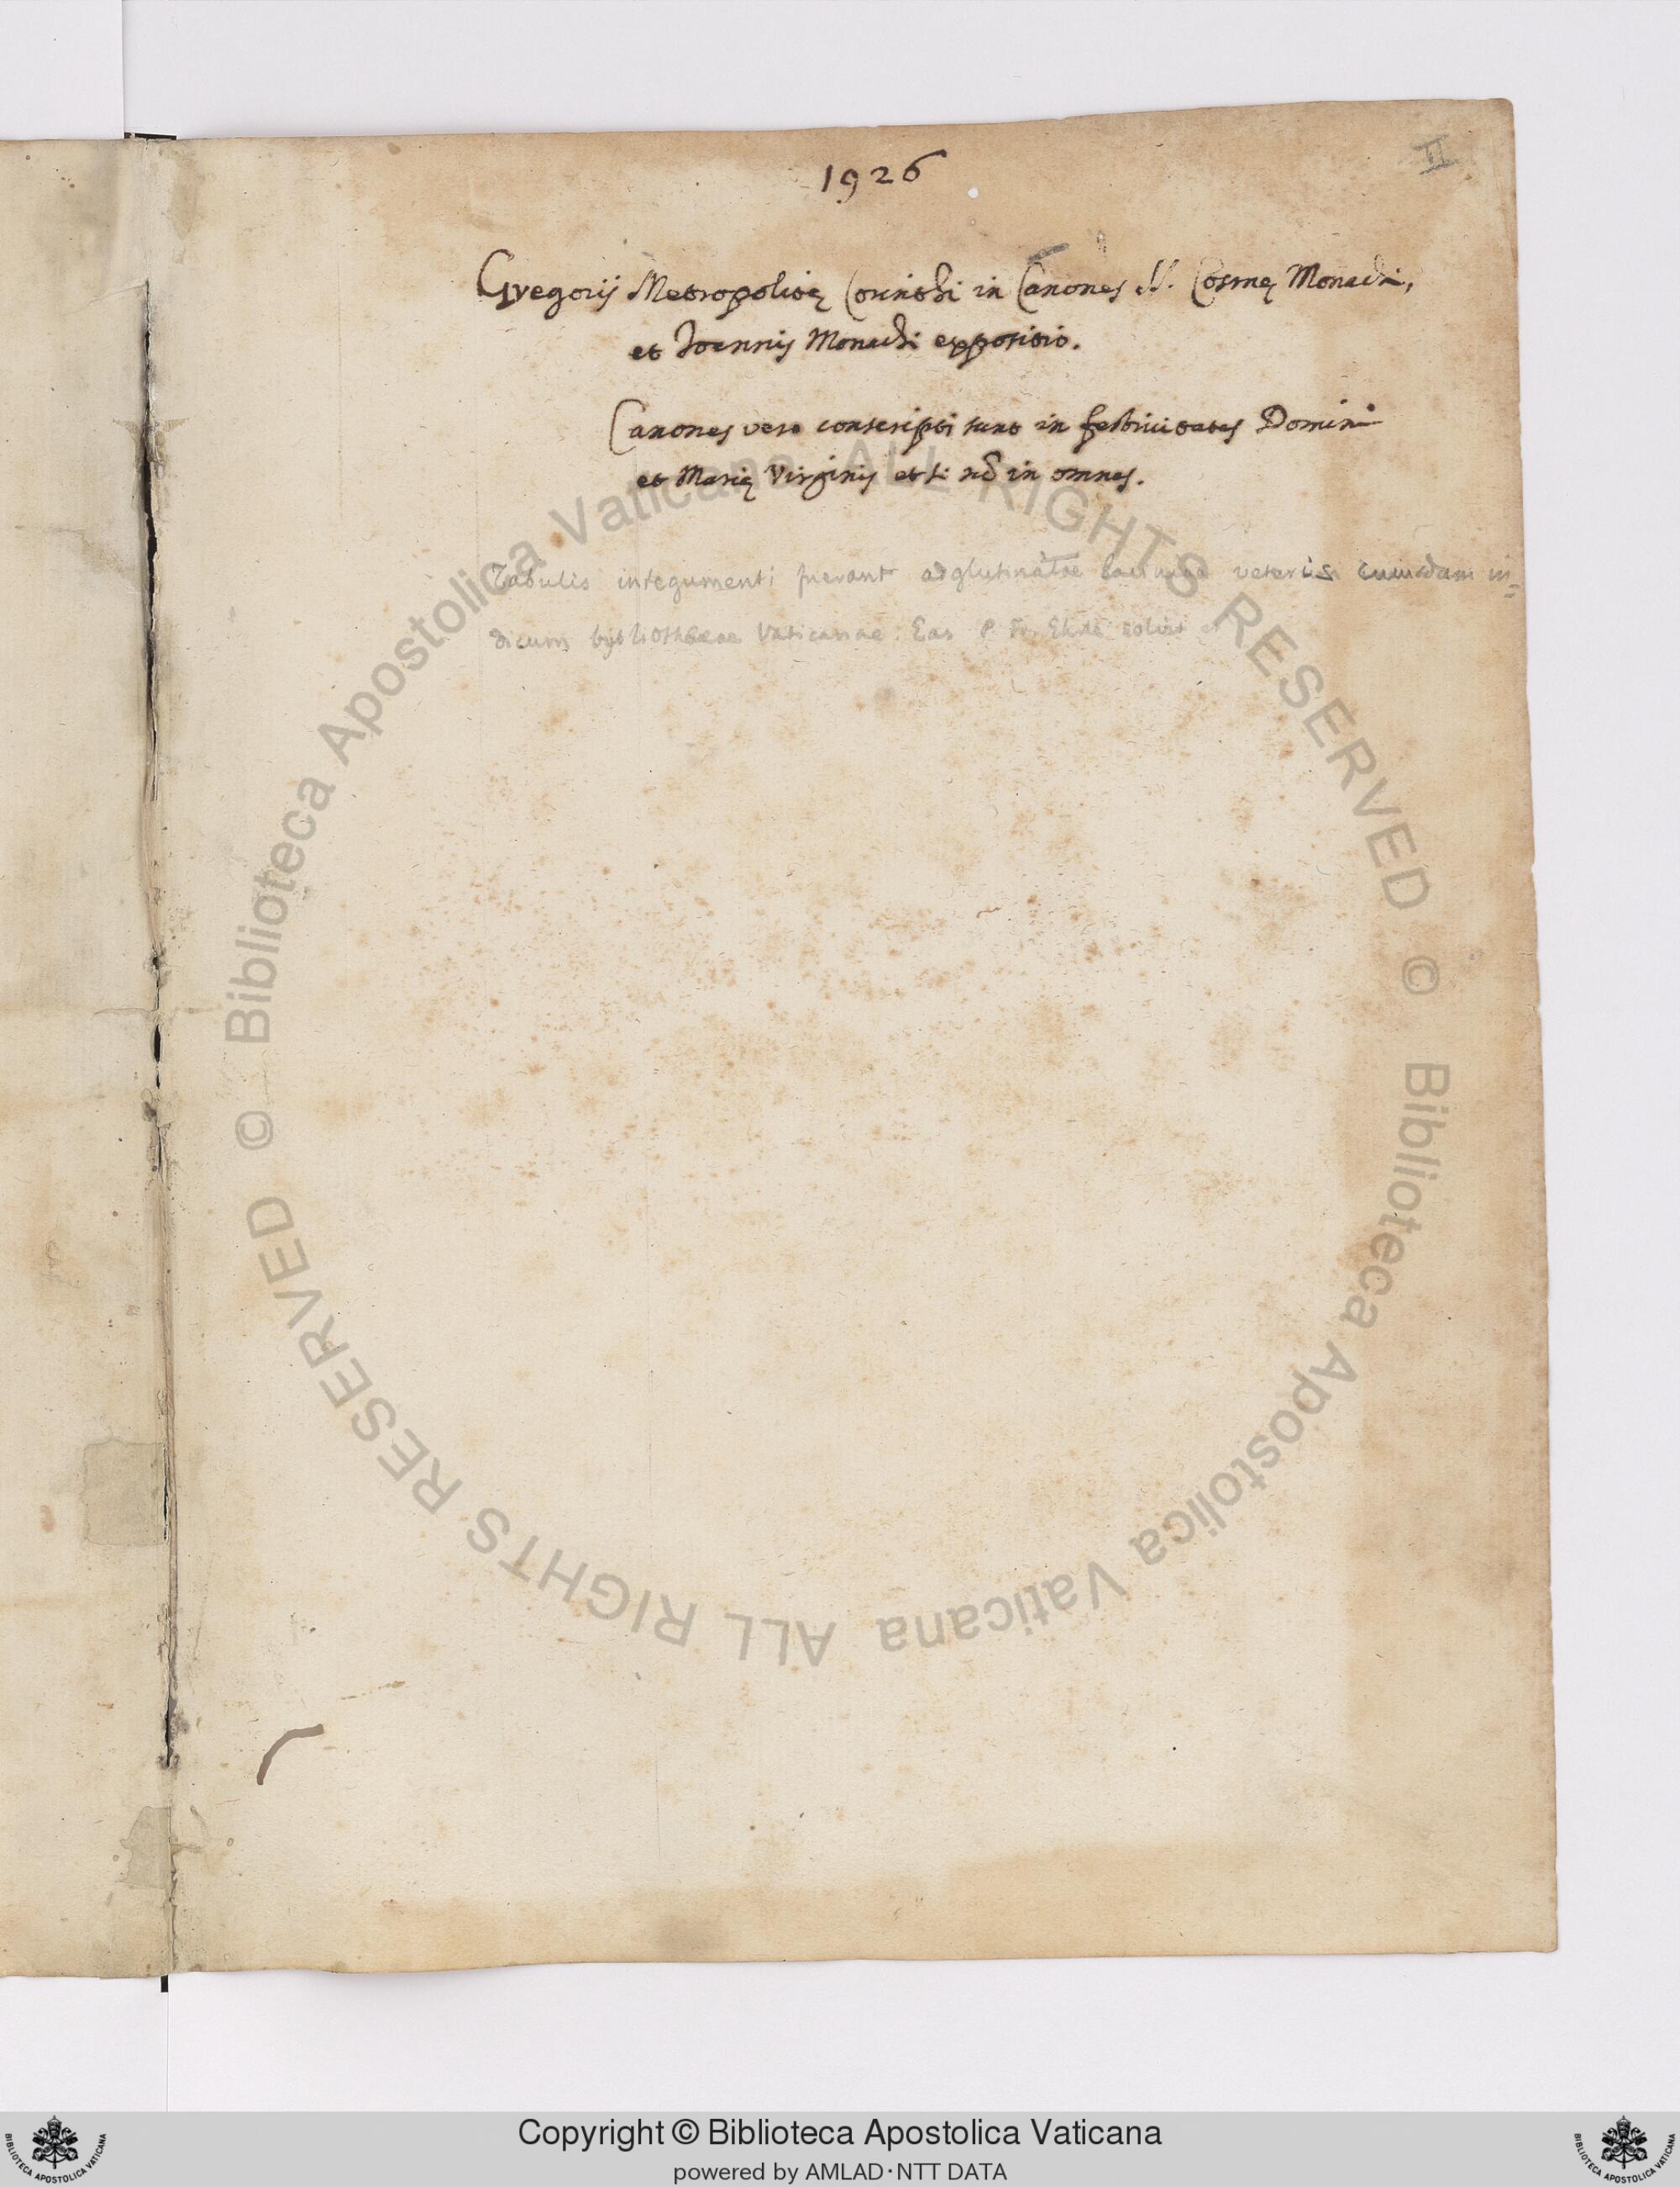 1926
II
Gregorij Metropolitę Corinthi in Canones SS. Cosmę Monachi,
et Ioannis Monachi expositio.
Canones vero conscripti sunt in festiuitates Domini
et Marię Virginis etsi nō in omnes.
Tabulis integumenti fuerant adglutinatae laciniae veteris cuiusdam in=
dicum bybliothecae Vaticanae. Eas P. Fr. Ehrle solvit
© Biblioteca Apostolica Vaticana ALL RIGHTS RESERVED
© Biblioteca Apostolica Vaticana ALL RIGHTS RESERVED
Copyright © Biblioteca Apostolica Vaticana
powered by AMLAD·NTT DATA
BIBLIOTECA APOSTOLICA VATICANA
BIBLIOTECA APOSTOLICA VATICANA